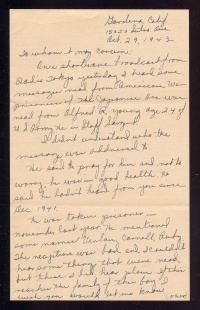 Gardena, Calif
Oct. 29, 1943
To whom it may concern:
On a shortwave broadcast from
Radio Tokyo yesterday I heard some
messages read from American War
prisoners of the Japanese. One was
read from Alfred R. Young Age 24 of
U.S. Army He is Staff Sargt.
I didn't understand who the
message was addressed to
He said to pray for him and not to
worry, he was in good health. He
said he hadn't heard from you since
Dec 1941.
He was taken prisoner in
November last year. He mentioned
some names
The reception was bad and I couldn't
hear some things that were read
but these I did hear plain. If this
reaches the family of this boy I
wish you would let me know